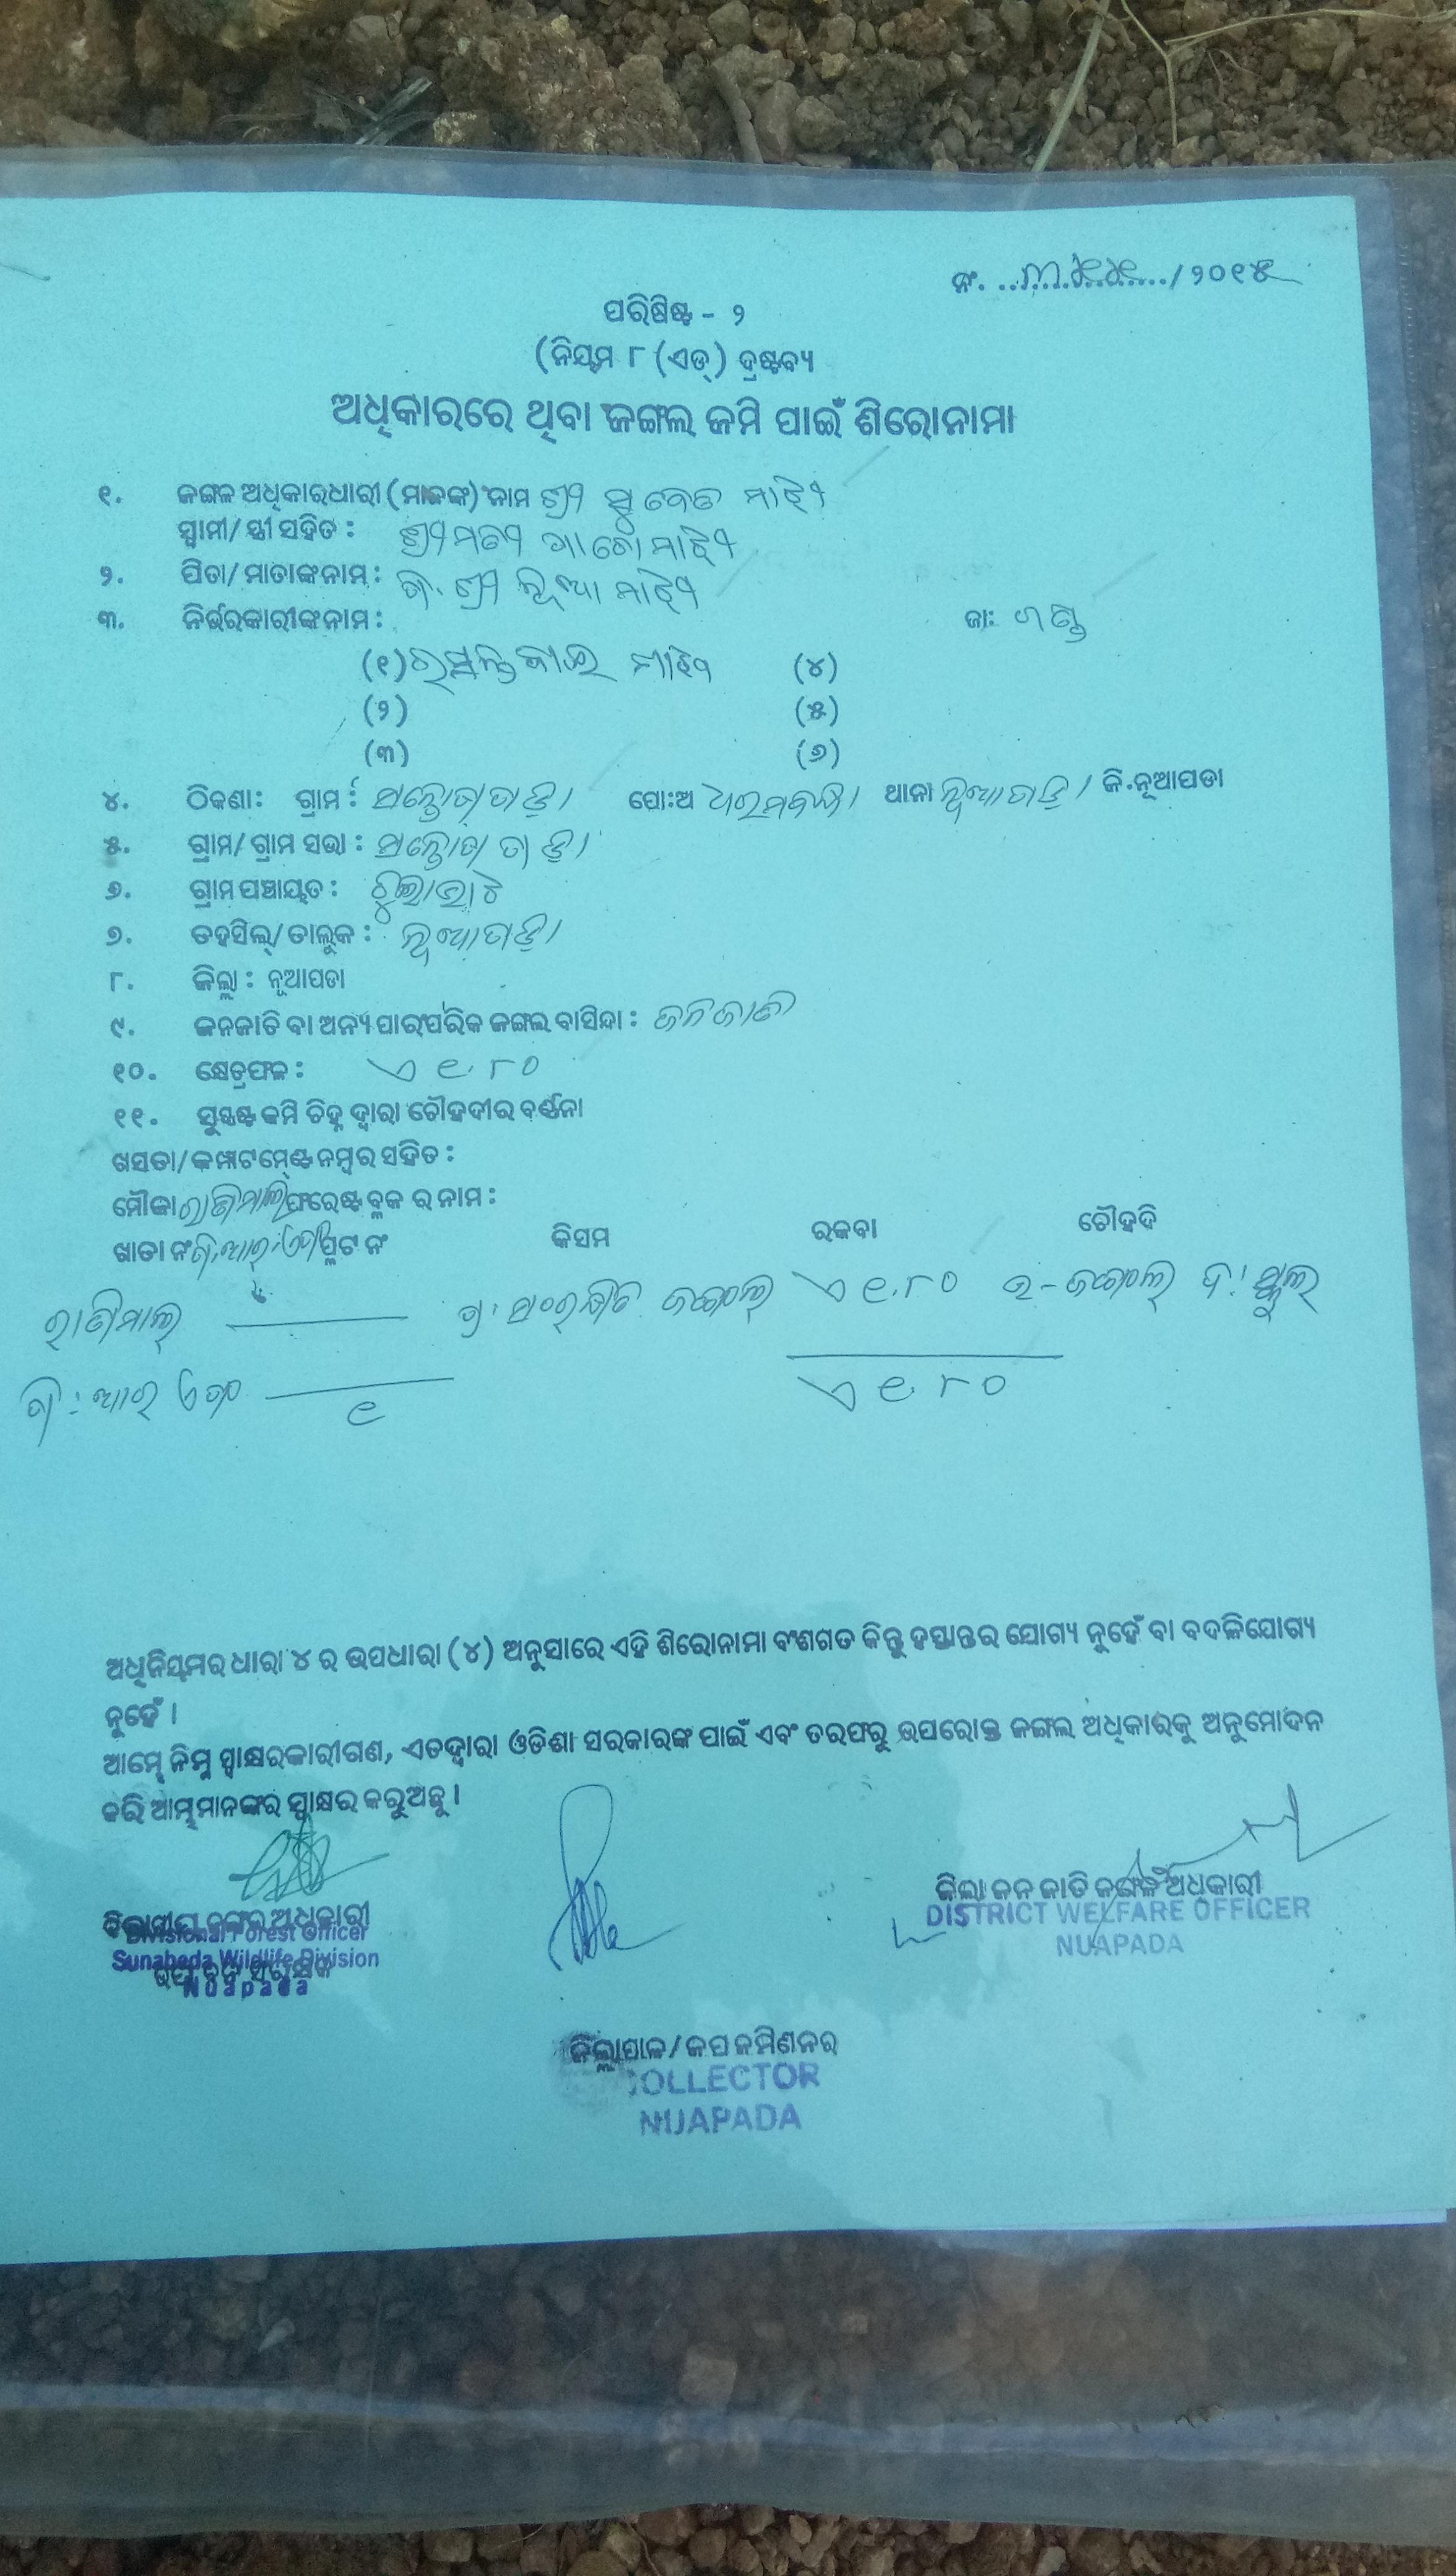 ନଂ. ................/ ୨୦୧୫
ପରିଶିଷ୍ଟ - ୨
(ନିୟମ ୮ (ଏଚ୍) ଦ୍ରଷ୍ଟବ୍ୟ
ଅଧିକାରରେ ଥିବା ଜଙ୍ଗଲ ଜମି ପାଇଁ ଶିରୋନାମା
୧. ଜଙ୍ଗଳ ଅଧିକାରଧାରୀ (ମାନଙ୍କ) ନାମ ଶ୍ରୀ ସୁକେତ ମାଝୀ
ସ୍ୱାମୀ/ ସ୍ତ୍ରୀ ସହିତ : ଶ୍ରୀମତୀ ମାଝୀ
୨. ପିତା/ ମାତାଙ୍କ ନାମ : ଶ୍ରୀ ମାଝୀ
୩. ନିର୍ଭରକାରୀଙ୍କ ନାମ : ଜା: ଗଣ୍ଡ
(୧) ମାଝି (୪)
(୨) (୫)
(୩) (୬)
୪. ଠିକଣା: ଗ୍ରାମ : ପୋ:ଅ ଥାନା ନୂଆପଡ଼ା ଜି.ନୂଆପଡା
୫. ଗ୍ରାମ/ ଗ୍ରାମ ସଭା :
୬. ଗ୍ରାମ ପଞ୍ଚାୟତ :
୭. ତହସିଲ୍/ ତାଲୁକ : ନୂଆପଡ଼ା
୮. ଜିଲ୍ଲା : ନୂଆପଡା
୯. ଜନଜାତି ବା ଅନ୍ୟ ପାରଂପରିକ ଜଙ୍ଗଲ ବାସିନ୍ଦା : ଜନଜାତି
୧୦. କ୍ଷେତ୍ରଫଳ : ଏ ୧.୮୦
୧୧. ସୁସ୍ପଷ୍ଟ ଜମି ଚିହ୍ନ ଦ୍ୱାରା ଚୌହଦୀର ବର୍ଣ୍ଣନା
ଖସଡା/ କମ୍ପାଟମେଣ୍ଟ ନମ୍ବର ସହିତ :
ମୌଜା ଫରେଷ୍ଟ ବ୍ଳକ ର ନାମ :
ଖାତା ନଂ ପ୍ଲଟ ନଂ କିସମ ରକବା ଚୌହଦି
ସଂରକ୍ଷିତ ଜଙ୍ଗଲ୍ ଏ ୧.୮୦ ଉ-ଜଙ୍ଗଲ୍ ଦ: ସ୍କୁଲ୍
୧ ଏ ୧.୮୦
ଅଧିନିୟମର ଧାରା ୪ ର ଉପଧାରା (୪) ଅନୁସାରେ ଏହି ଶିରୋନାମା ବଂଶଗତ କିନ୍ତୁ ହସ୍ତାନ୍ତର ଯୋଗ୍ୟ ନୁହେଁ ବା ବଦଳିଯୋଗ୍ୟ
ନୁହେଁ ।
ଆମ୍ଭେ ନିମ୍ନ ସ୍ୱାକ୍ଷରକାରୀଗଣ, ଏତଦ୍ୱାରା ଓଡିଶା ସରକାରଙ୍କ ପାଇଁ ଏବଂ ତରଫରୁ ଉପରୋକ୍ତ ଜଙ୍ଗଲ ଅଧିକାରକୁ ଅନୁମୋଦନ
କରି ଆମ୍ଭମାନଙ୍କର ସ୍ୱାକ୍ଷର କରୁଅଛୁ ।
ବିଭାଗୀୟ ଜଙ୍ଗଲ ଅଧିକାରୀ
Divisional Forest Officer
Sunabeda Wildlife Division
Nuapada
ଜିଲା ଜନ ଜାତି ଜଙ୍ଗଳ ଅଧିକାରୀ
DISTRICT WELFARE OFFICER
NUAPADA
ଜିଲ୍ଲାପାଳ/ ଉପ କମିଶନର
COLLECTOR
NUAPADA